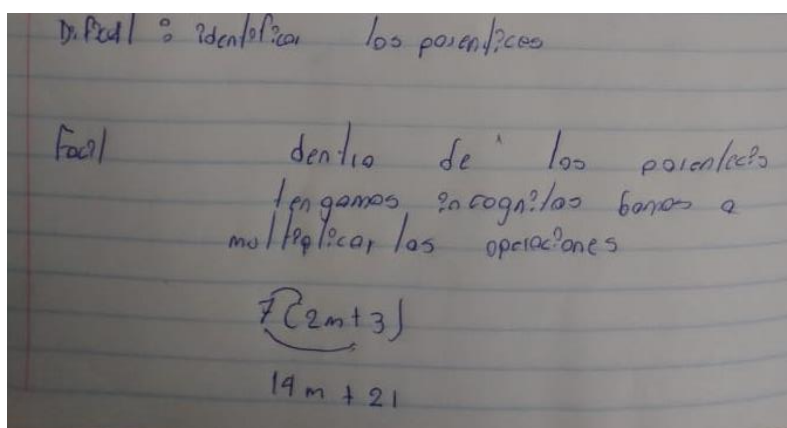 Dificil : identificar los parentices
Facil dentro de los parentecis
tengamos incognitas bamos a
multiplicar las operaciones
7(2m+3)
14m + 21